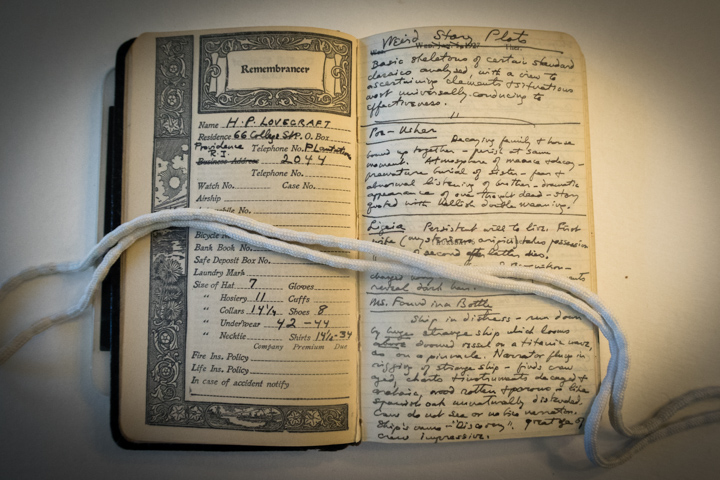 Remembrancer
Name H. P. LOVECRAFT
Residence 66 College St. P. O. Box
Providence R. I. Telephone No. PLantations
Business Address 2044
Telephone No.
Watch No. Case No.
Airship
Automobile No.
Bicycle
Bank Book No.
Safe Deposit Box No.
Laundry Mark
Size of Hat 7 Gloves
" Hosiery 11 Cuffs
" Collars 14½ Shoes 8
" Underwear 42-44
" Necktie Shirts 14½-34
Company Premium Due
Fire Ins. Policy
Life Ins. Policy
In case of accident notify
Weird Story Plots
Basic skeletons of certain standard
classics analysed, with a view to
ascertaining elements & situations
most universally conducing to
effectiveness.
Poe - Usher
Decaying family & house
bound up together - perish at same
moment. Atmosphere of menace & decay -
premature burial of sister - fear &
abnormal listening of brother - dramatic
appearance of one thought dead - story
quoted with hellish double meaning.
Ligeia Persistent will to live. First
wife (mysterious origin) takes possession
of second after latter dies.
reveal dark
MS. Found in a Bottle
Ship in distress - run down
by huge strange ship which looms
above doomed vessel on a titanic wave,
as on a pinnacle. Narrator flung in
rigging of strange ship - finds crew
aged, charts & instruments decayed &
archaic, wood rotten & porous & like
Spanish oak unnaturally distended.
Crew do not see or notice narrator.
Ship's name - "Discovery". great age of
crew impressive.